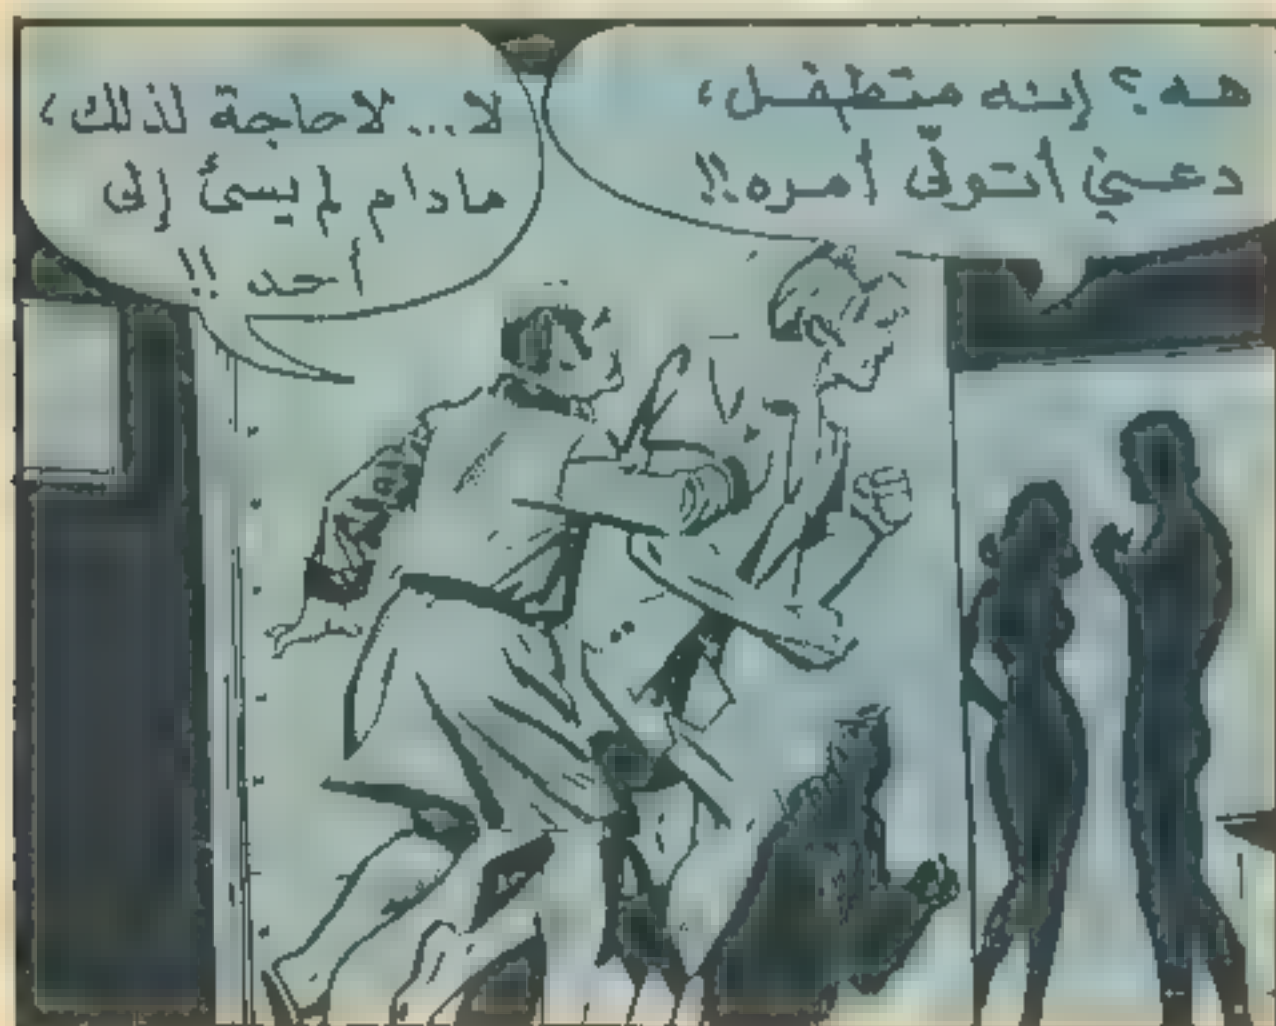 هه؟ إنه متطفل،
دعني أتولّى أمره!!
لا... لاحاجة لذلك،
مادام لم يسئ إلى
أحد!!